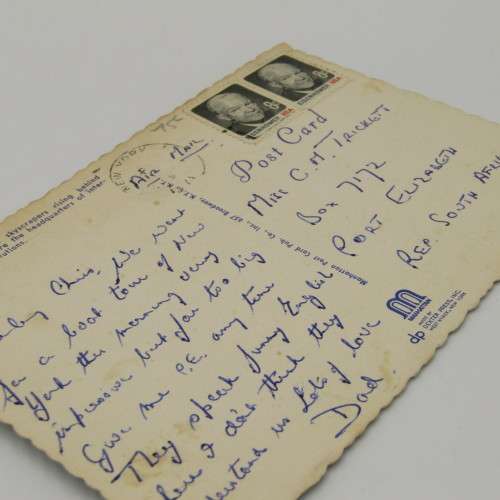 75
8c USA
8c USA
EISENHOWER
NEW YORK
AIR MAIL
Post Card
MISS C. M. TRICKETT
BOX 7172
PORT ELIZABETH
REP. SOUTH AFRI
skyscrapers rising behind
the headquarters of inter-
Manhattan Post Card Pub. Co., Inc.
MANHATTAN
dp
MADE BY
DEXTER PRESS, INC.
WEST NYACK, NEW YORK
Chris, We went
for a boat tour of New
York this morning very
impressive but far too big
Give me P.E. any time
They speak funny English
here I don't think they
understand us Lots of love
Dad.